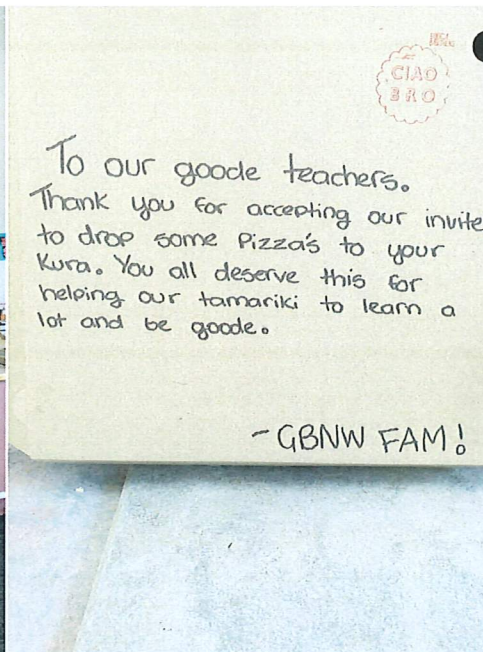 CIAO
BRO
To our goode teachers.
Thank you for accepting our invite
to drop some Pizza's to your
Kura. You all deserve this for
helping our tamariki to learn a
lot and be goode.
- GBNW FAM!